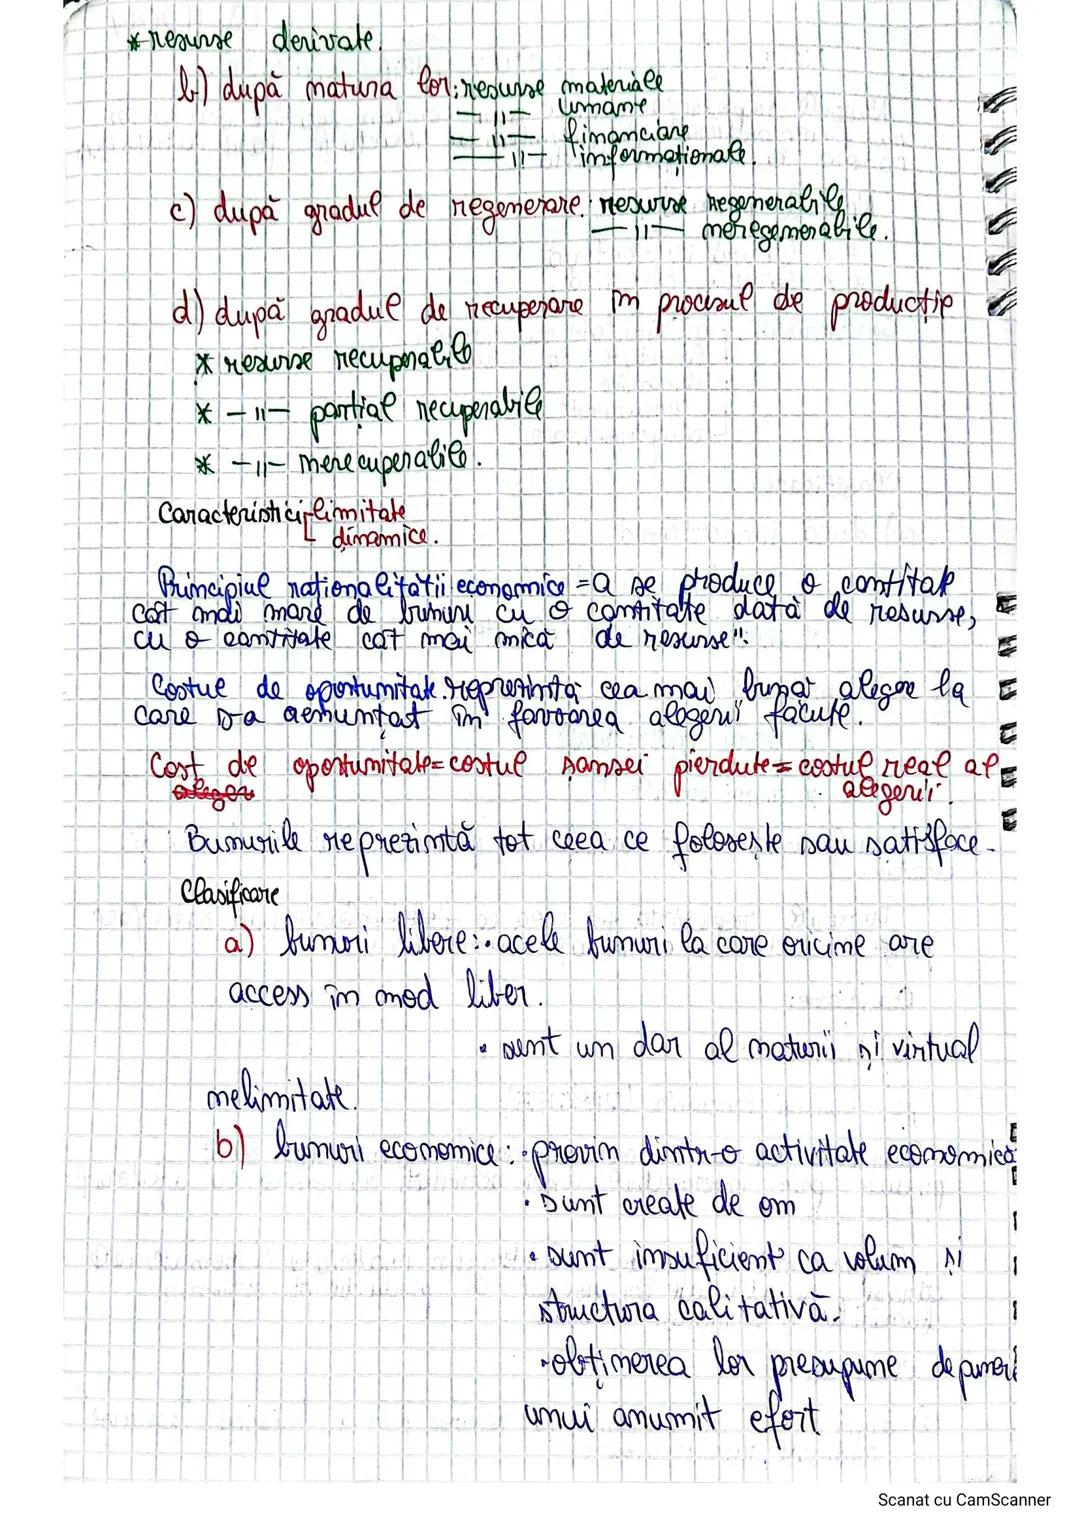 * resurse derivate.
b) după natura lor: resurse materiale
— 11 — umane
— 11 — financiare
— 11 — informaționale.
c) după gradul de regenerare: resurse regenerabile
— 11 — neregenerabile.
d) după gradul de recuperare în procesul de producție
* resurse recuperabile
* — 11 — parțial recuperabile
* — 11 — nerecuperabile.
Caracteristici limitate
dinamice.
Principiul raționalității economice = a se produce o cantitate
cât mai mare de bunuri cu o cantitate dată de resurse,
cu o cantitate cât mai mică de resurse".
Costul de oportunitate reprezintă cea mai bună alegere la
care s-a renunțat în favoarea alegerii făcute.
Cost de oportunitate = costul șansei pierdute = costul real al
alegerii.
Bunurile reprezintă tot ceea ce folosește sau satisface.
Clasificare
a) bunuri libere: • acele bunuri la care oricine are
access în mod liber.
• sunt un dar al naturii și virtual
nelimitate.
b) bunuri economice: • provin dintr-o activitate economică
• sunt create de om
• sunt insuficient ca volum și
structura calitativă.
• obținerea lor presupune depunerea
unui anumit efort
Scanat cu CamScanner